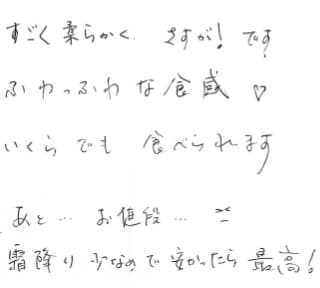 すごく柔らかく、さすが!です
ふわっふわな食感♡
いくらでも 食べられます
あと… お値段…
霜降り 少なめで 安かったら 最高!